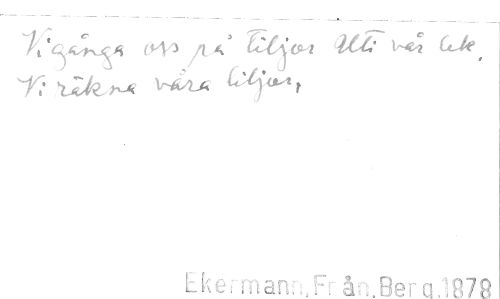 Vi gånga oss på tiljor Uti vår lek,
Vi räkna våra liljor,
Ekermann, Från. Berg. 1878